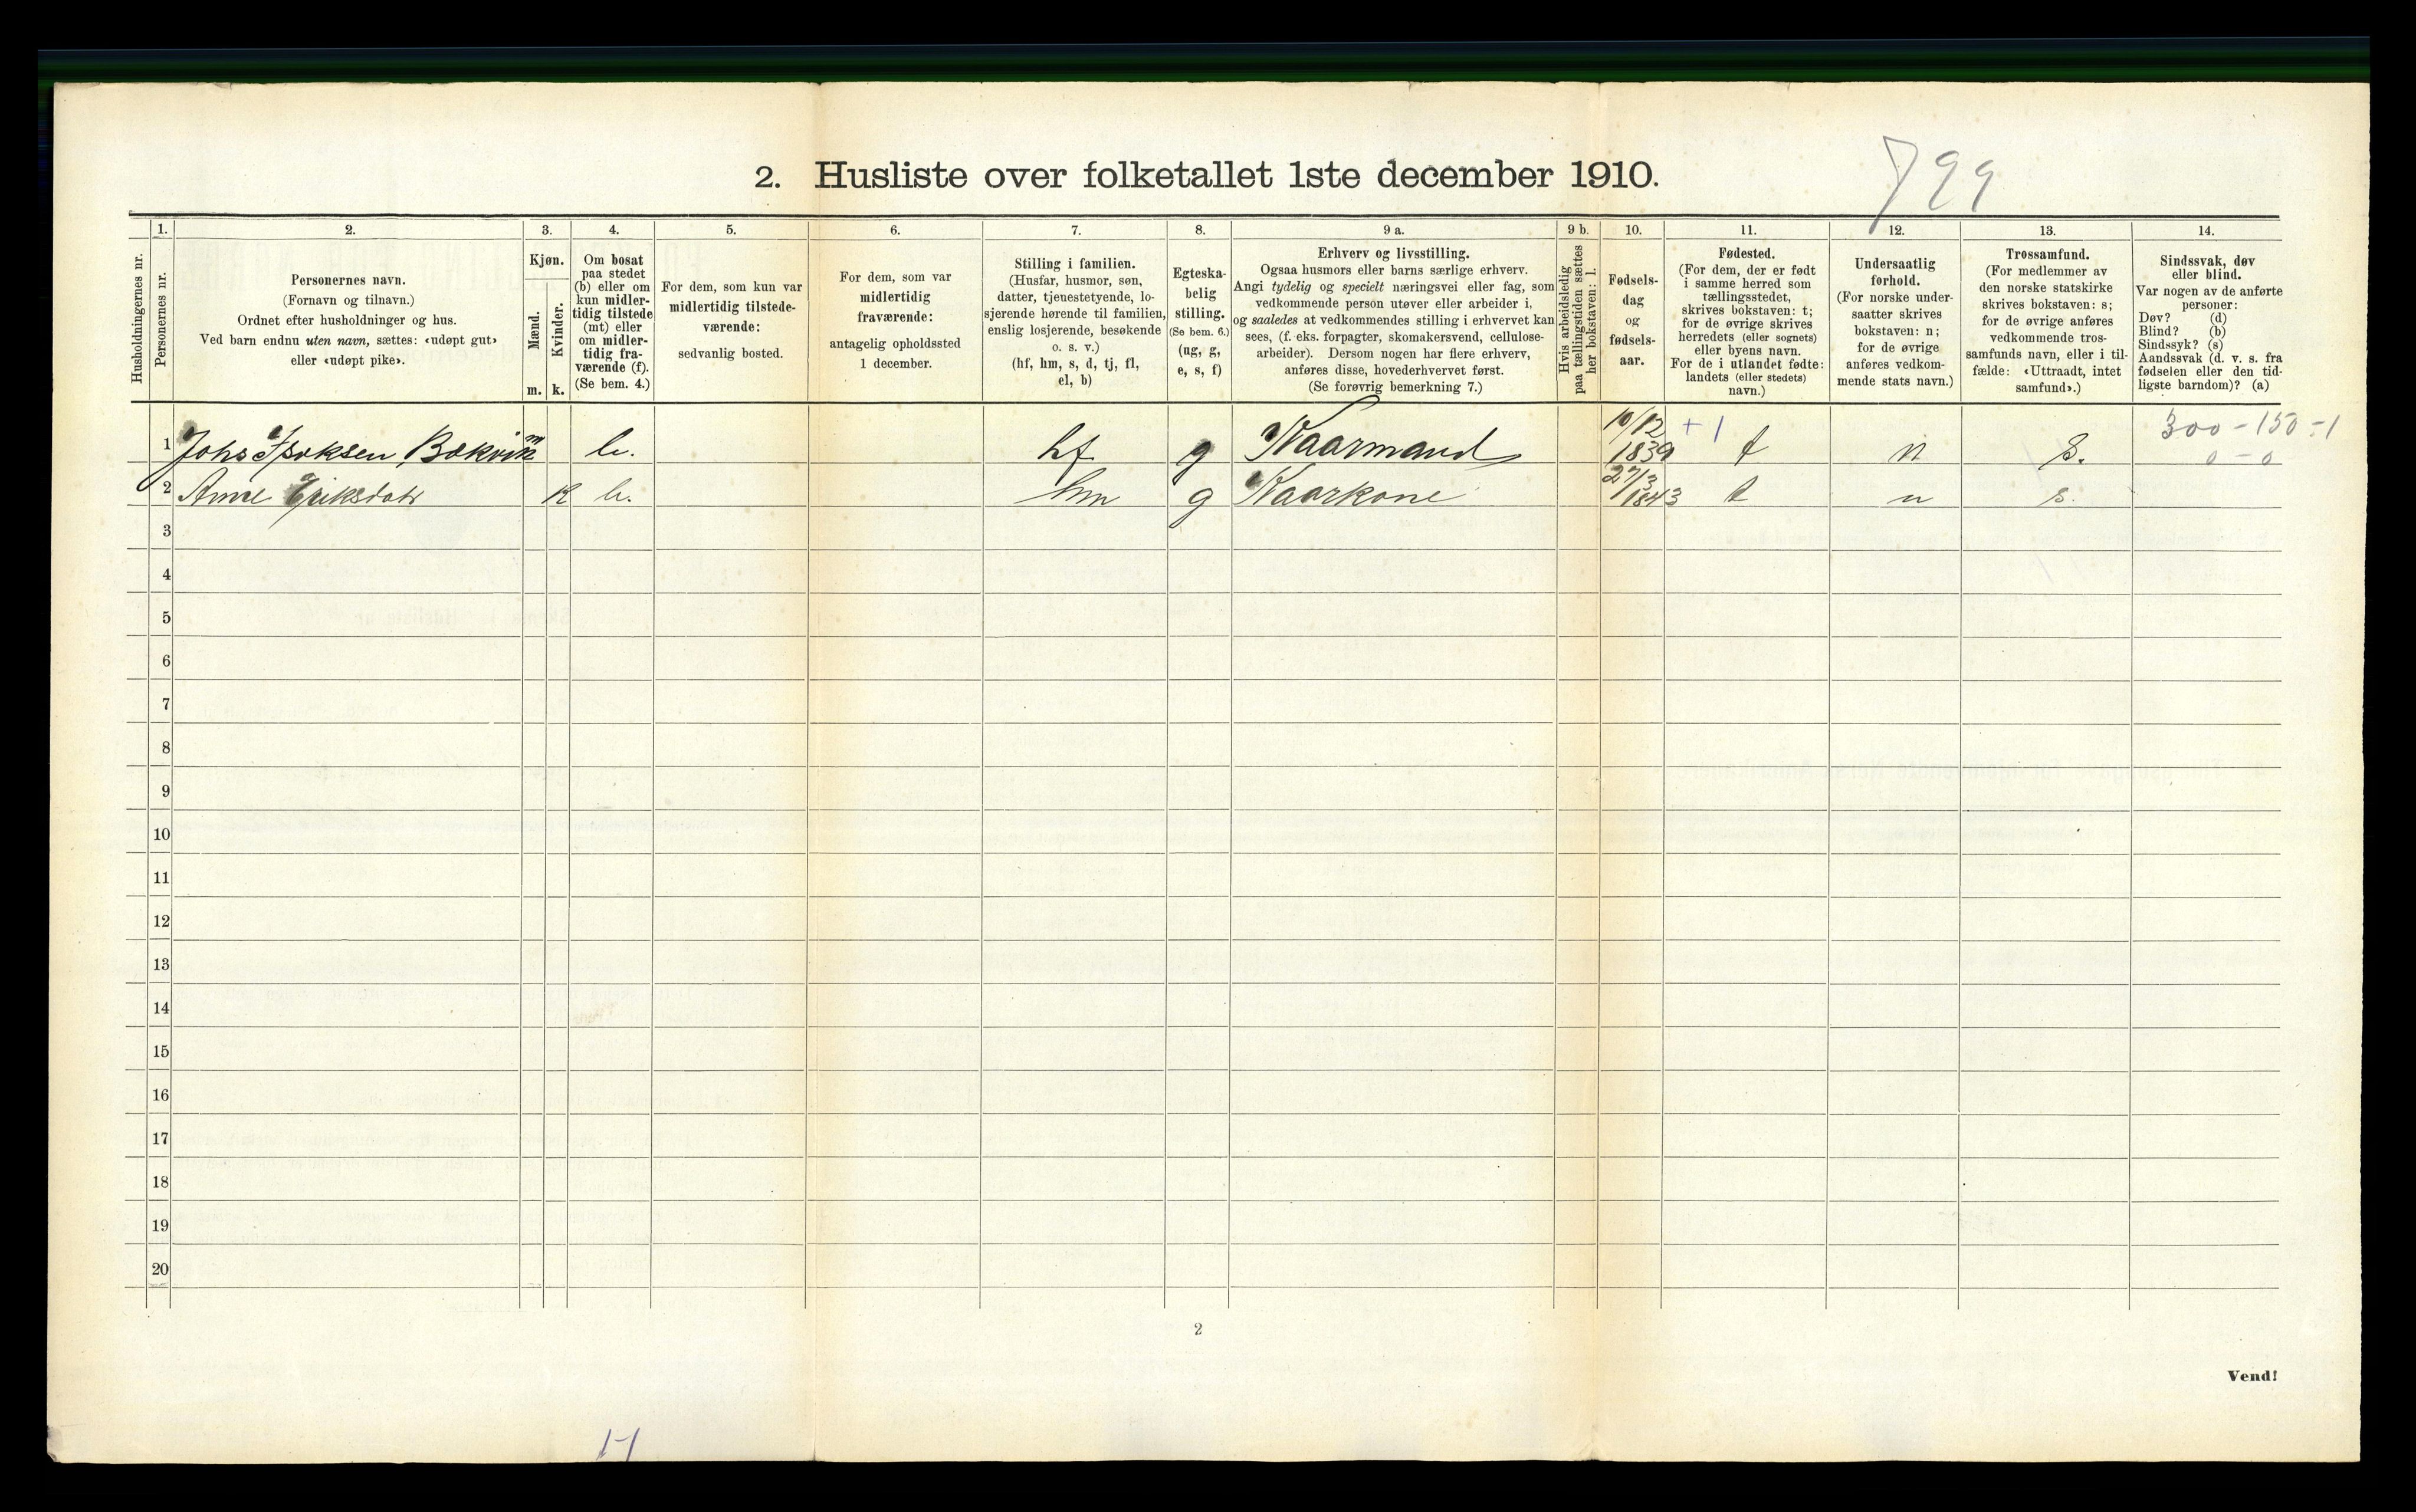 799
2. Husliste over folketallet 1ste december 1910.
Husholdningernes nr.
1.
Personernes nr.
2.
Personernes navn.
(Fornavn og tilnavn.)
Ordnet efter husholdninger og hus.
Ved barn endnu uten navn, sættes: «udøpt gut»
eller «udøpt pike».
3.
Kjøn.
Mænd.
Kvinder.
m. k.
4.
Om bosat
paa stedet
(b) eller om
kun midler-
tidig tilstede
(mt) eller
om midler-
tidig fra-
værende (f).
(Se bem. 4.)
5.
For dem, som kun var
midlertidig tilstede-
værende:
sedvanlig bosted.
6.
For dem, som var
midlertidig
fraværende:
antagelig opholdssted
1 december.
7.
Stilling i familien.
(Husfar, husmor, søn,
datter, tjenestetyende, lo-
sjerende hørende til familien,
enslig losjerende, besøkende
o. s. v.)
(hf, hm, s, d, tj, fl,
el, b)
8.
Egteska-
belig
stilling.
(Se bem. 6.)
(ug, g,
e, s, f)
9 a.
Erhverv og livsstilling.
Ogsaa husmors eller barns særlige erhverv.
Angi tydelig og specielt næringsvei eller fag, som
vedkommende person utøver eller arbeider i,
og saaledes at vedkommendes stilling i erhvervet kan
sees, (f. eks. forpagter, skomakersvend, cellulose-
arbeider). Dersom nogen har flere erhverv,
anføres disse, hovederhvervet først.
(Se forøvrig bemerkning 7.)
9 b.
Hvis arbeidsledig
paa tællingstiden sættes
her bokstaven: l.
10.
Fødsels-
dag
og
fødsels-
aar.
11.
Fødested.
(For dem, der er født
i samme herred som
tællingsstedet,
skrives bokstaven: t;
for de øvrige skrives
herredets (eller sognets)
eller byens navn.
For de i utlandet fødte:
landets (eller stedets)
navn.)
12.
Undersaatlig
forhold.
(For norske under-
saatter skrives
bokstaven: n;
for de øvrige
anføres vedkom-
mende stats navn.)
13.
Trossamfund.
(For medlemmer av
den norske statskirke
skrives bokstaven: s;
for de øvrige anføres
vedkommende tros-
samfunds navn, eller i til-
fælde: «Uttraadt, intet
samfund».)
14.
Sindssvak, døv
eller blind.
Var nogen av de anførte
personer:
Døv? (d)
Blind? (b)
Sindssyk? (s)
Aandssvak (d. v. s. fra
fødselen eller den tid-
ligste barndom)? (a)
1 Johs m b. hf g Kaarmand 10/12 1839 +1 t n s. 300-150-1
0-0
2 Anne Eriksdatr k b. hm g Kaarkone 27/3 1843 t n s.
3
4
5
6
7
8
9
10
11
12
13
14
15
16
17
18
19
20
2
Vend!